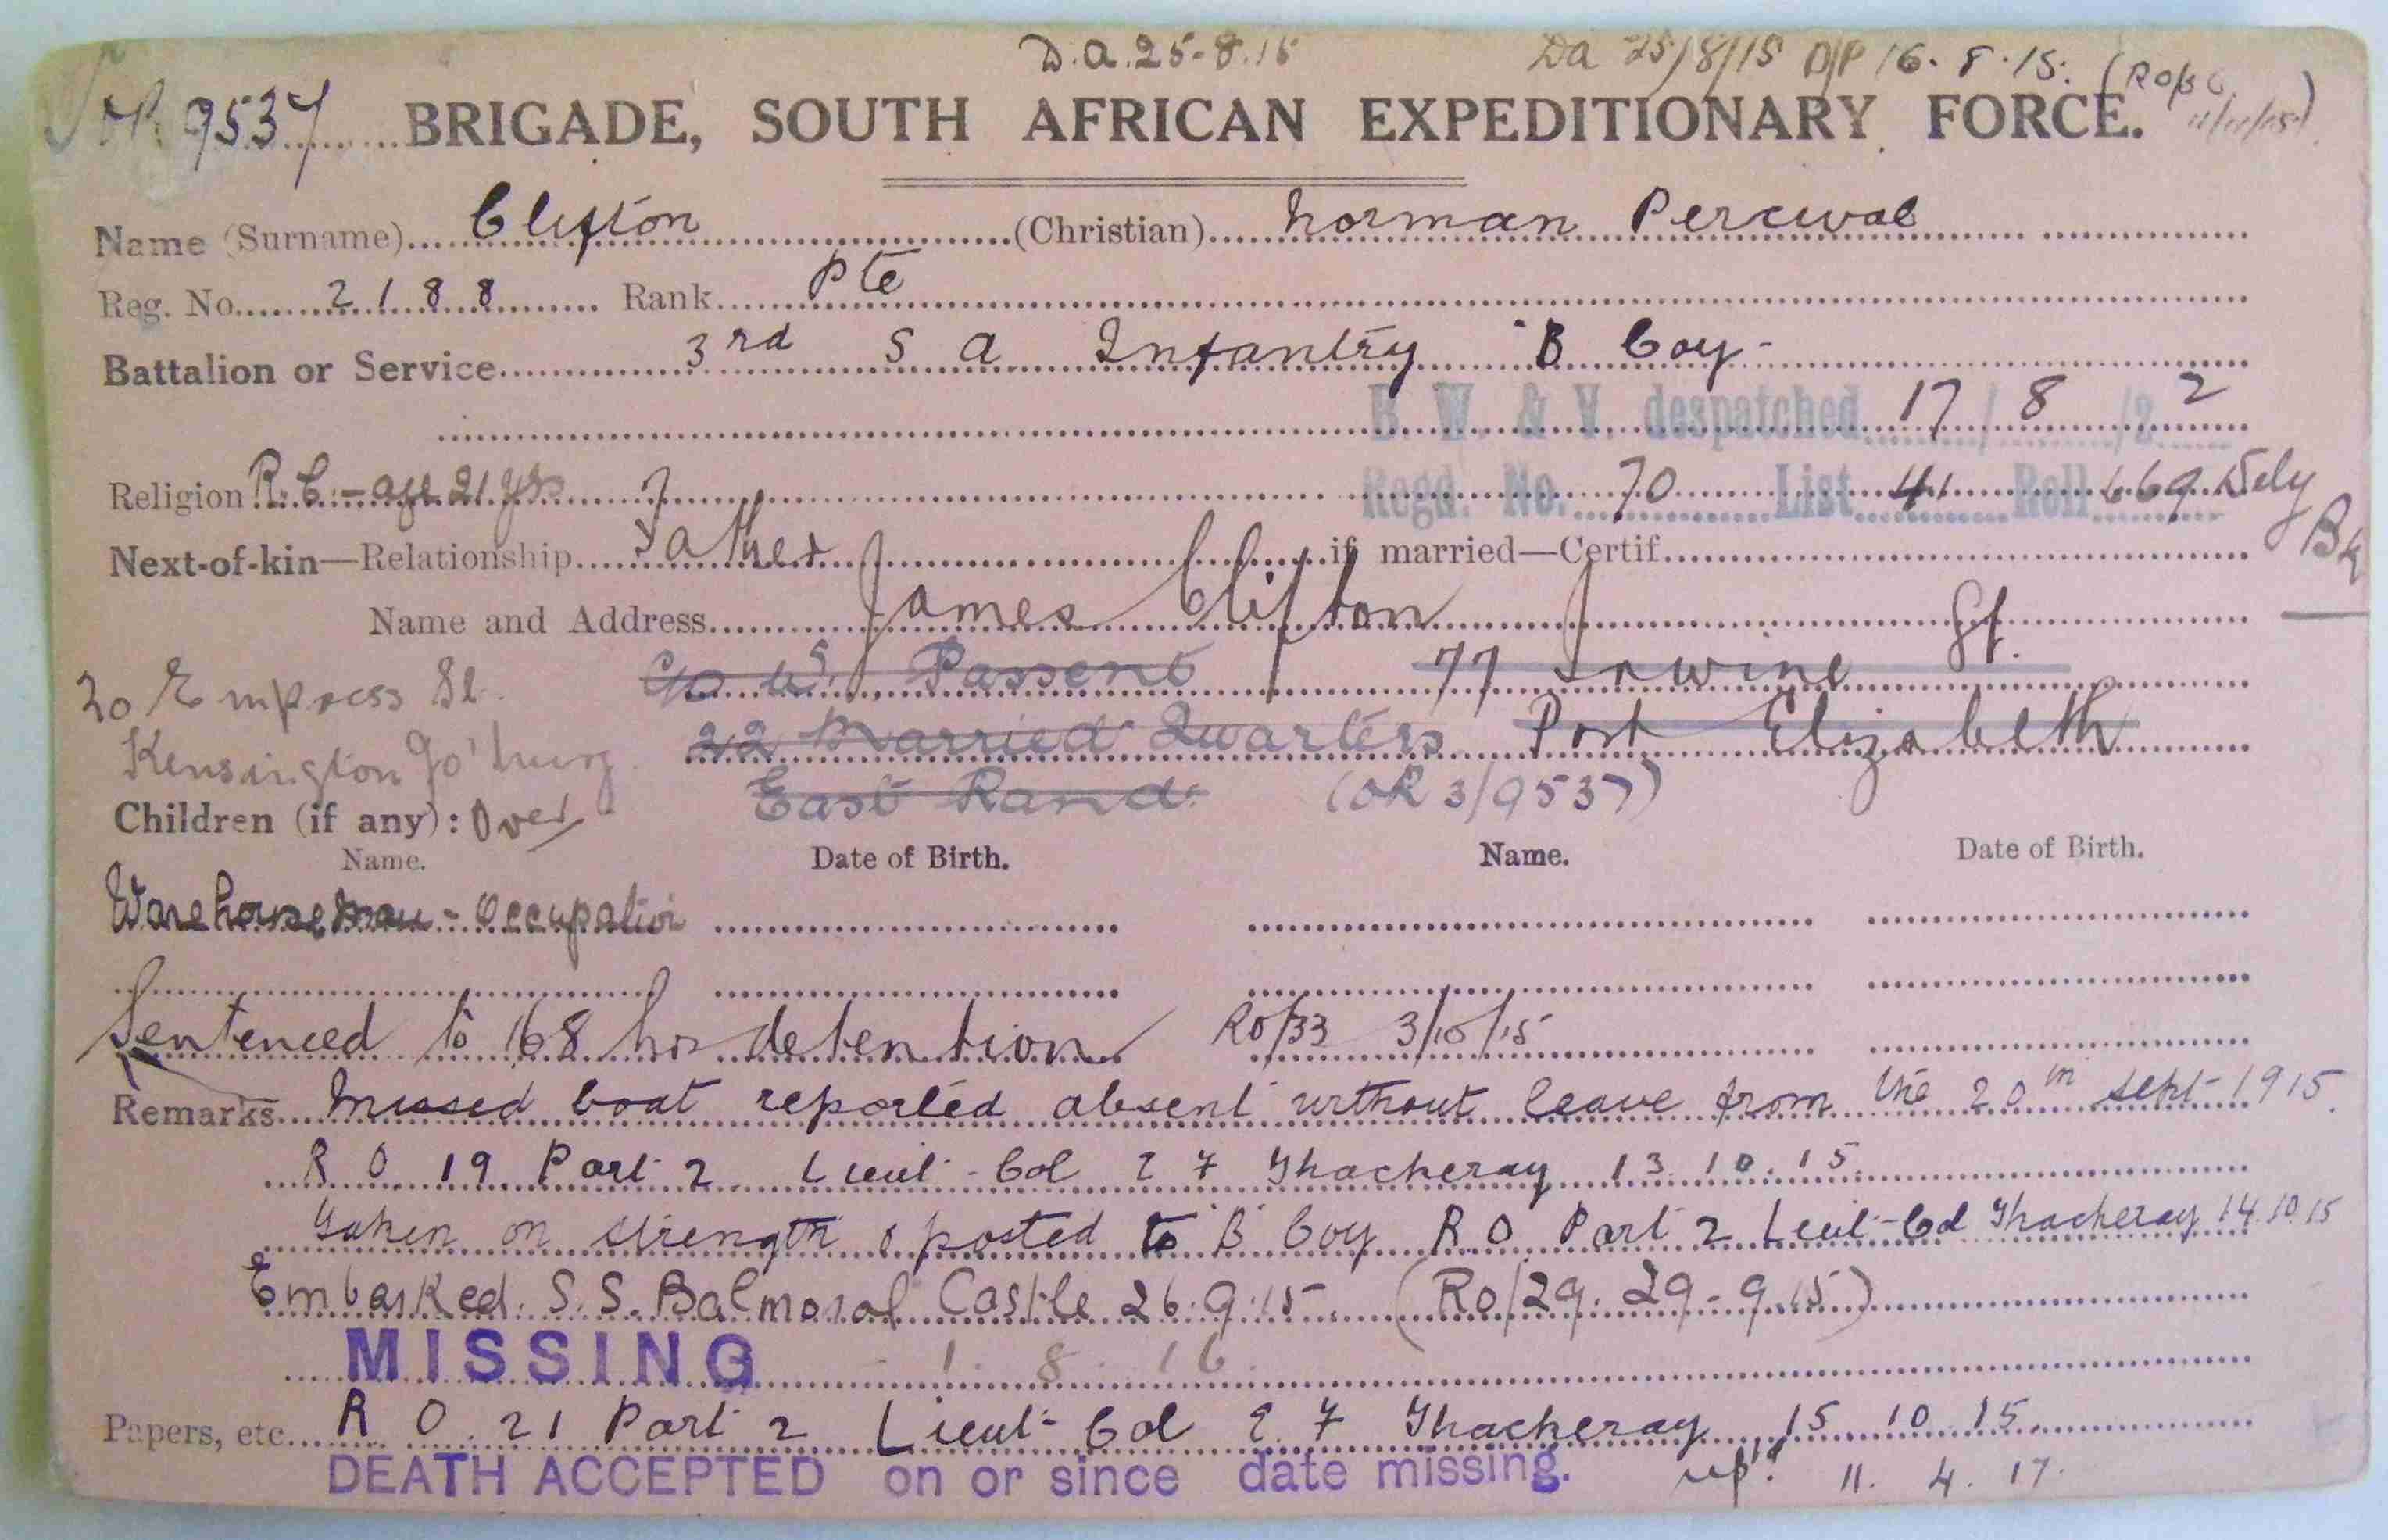 D.A. 25-8.15 Da 25/8/15 D/P 16.8.15. (RO/36 11/11/15)
OR 9537 BRIGADE, SOUTH AFRICAN EXPEDITIONARY FORCE.
Name (Surname) Clifton (Christian) Norman Percival
Reg. No. 2188 Rank Pte
Battalion or Service 3rd S A Infantry B Coy-
B. W. & V. despatched 17/8/22
Religion R.C - age 21 yrs Regd. No. 70 List 41 Roll 669 Dely Bk
Next-of-kin—Relationship Father if married—Certif.
Name and Address James Clifton
20 Empress St. c/o W. Passens 77 Irwine St.
Kensington Jo'burg 22 Married Quarters Port Elizabeth
East Rand. (OR 3/9537)
Children (if any): Over
Name. Date of Birth. Name. Date of Birth.
Warehouseman - Occupation
Sentenced to 168 hrs detention RO/33 3/10/15
Remarks Missed boat reported absent without leave from the 20th Sept-1915.
R O 19 Part 2 Lieut-Col E F Thackeray 13.10.15.
Taken on strength & posted to B Coy R.O. Part 2 Lieut-Col Thackeray 14.10.15
Embarked. S.S. Balmoral Castle 26.9.15. (Ro/29. 29-9.15)
MISSING - 1. 8. 16.
Papers, etc. R O. 21 Part 2 Lieut-Col E. F Thackeray 15.10.15.
DEATH ACCEPTED on or since date missing. 11. 4. 17.